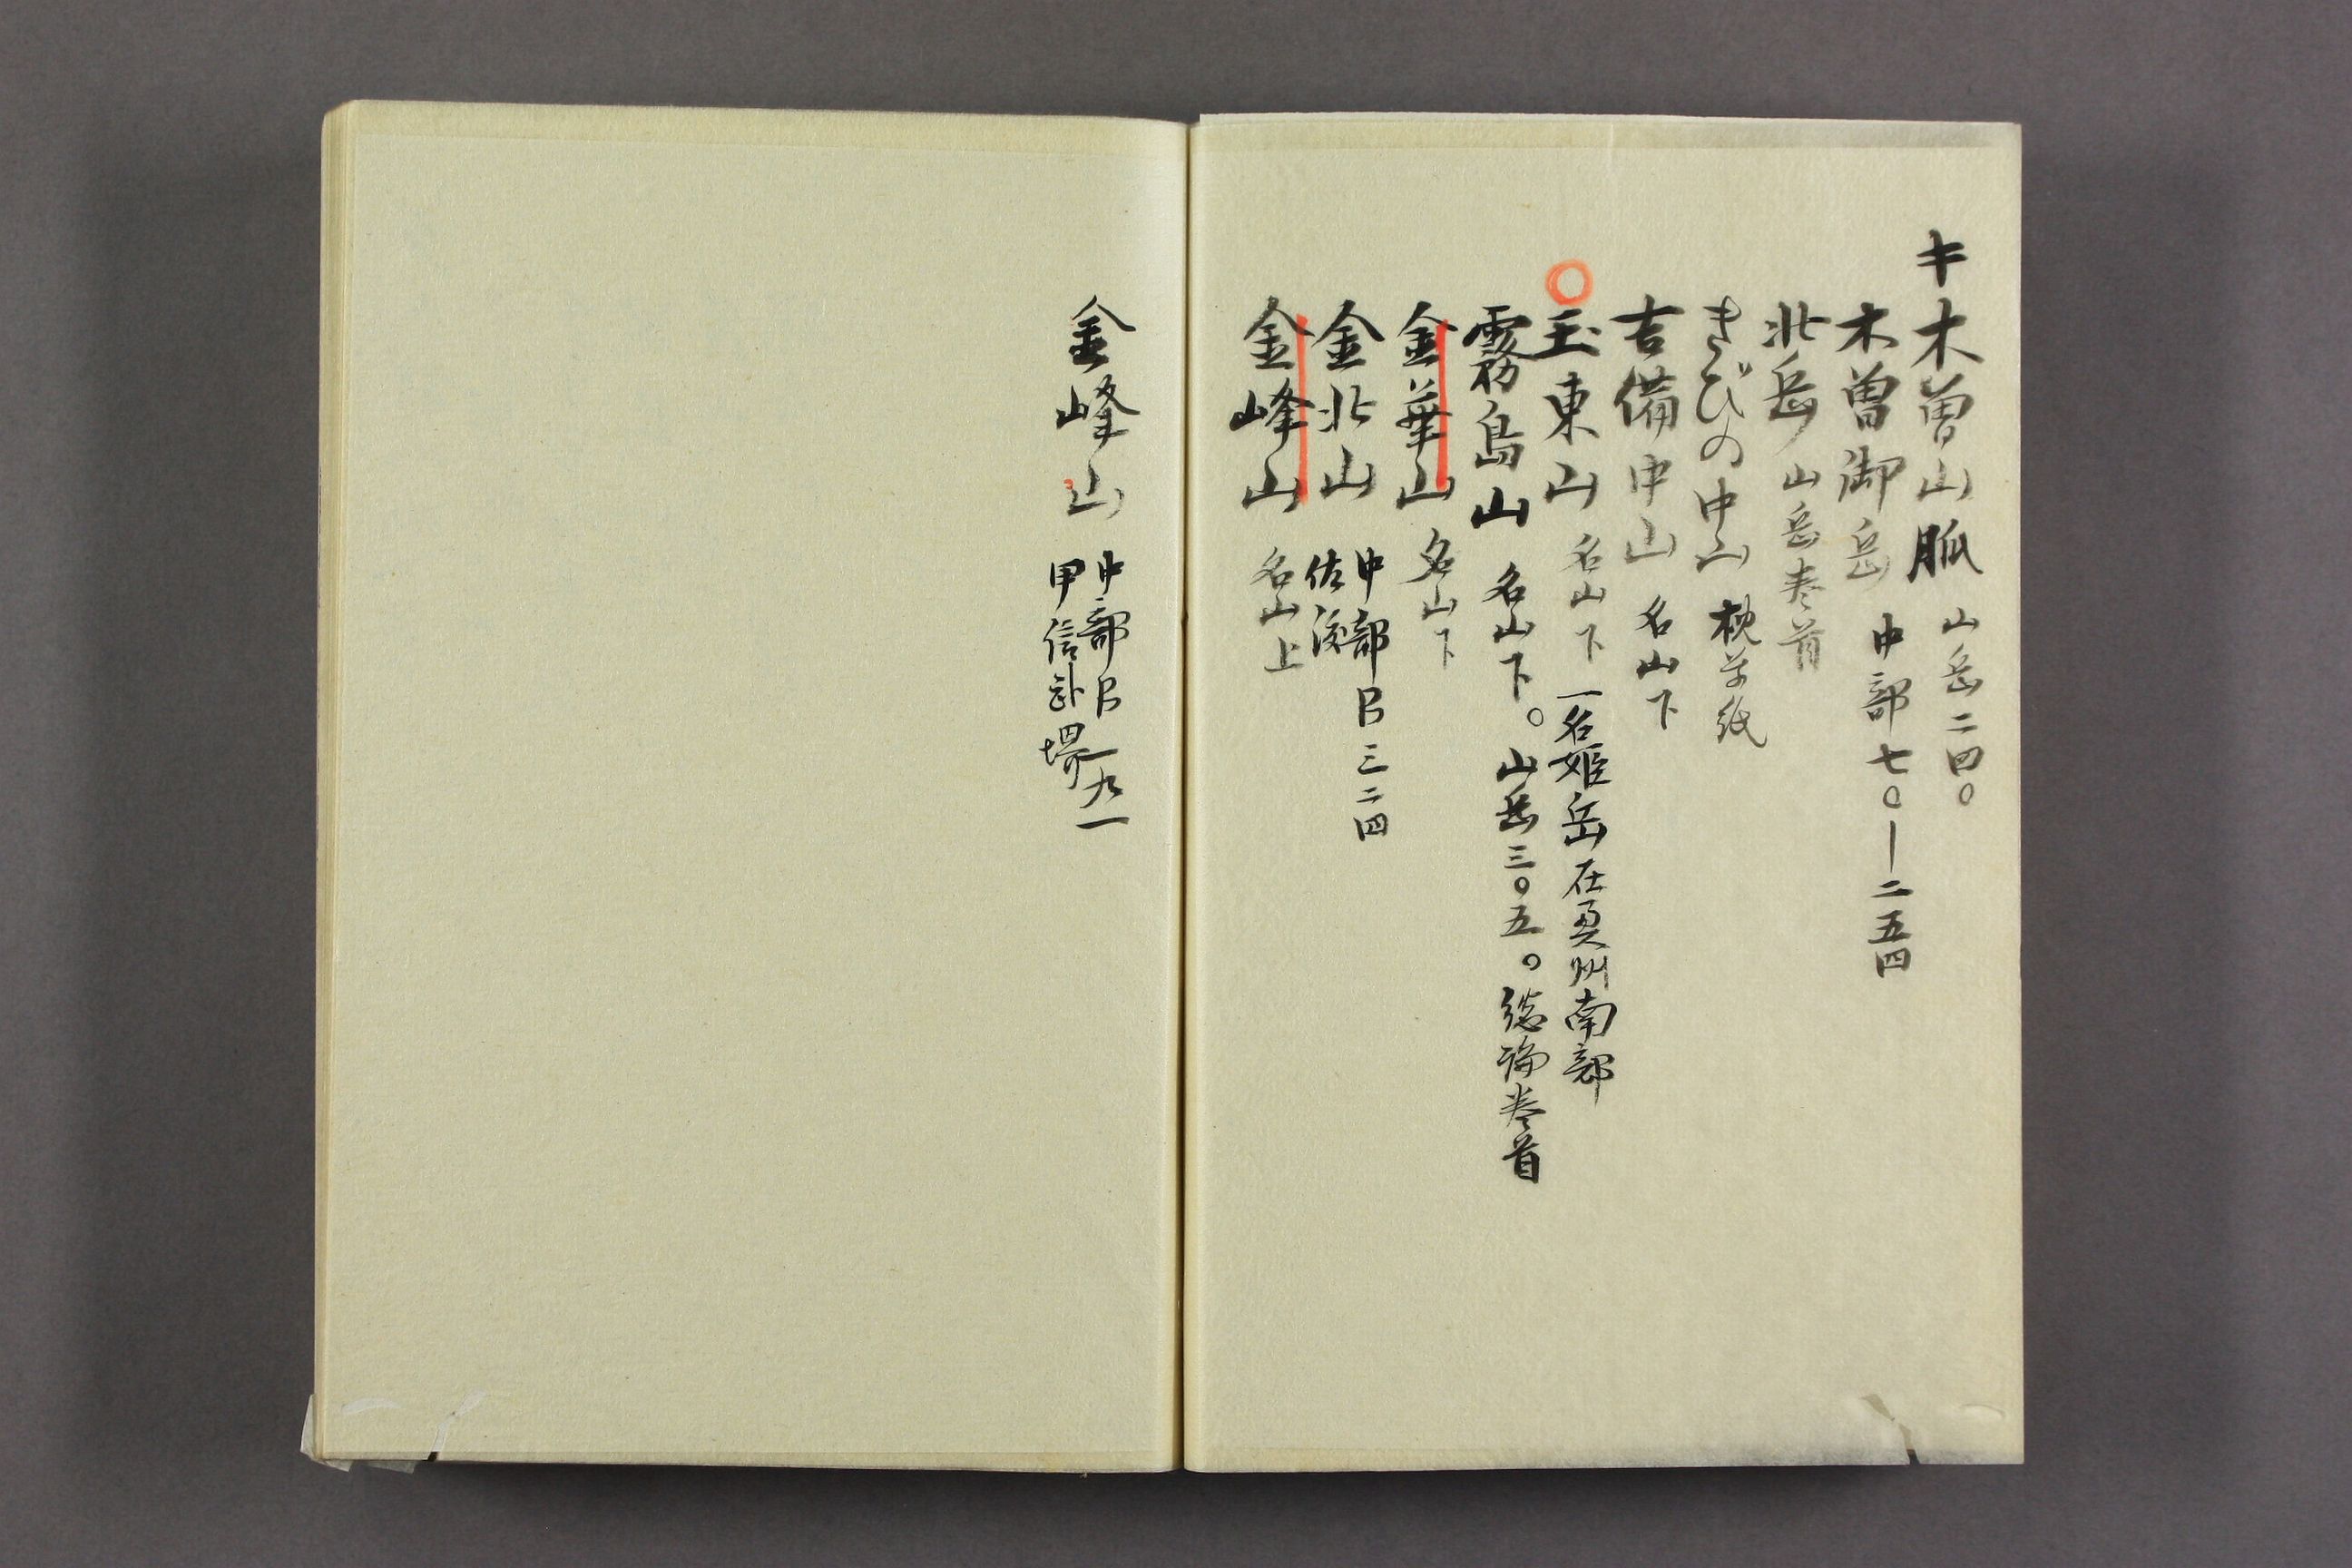 キ木曽山脈 山岳二四〇
木曽御岳 中部七〇―二五四
北岳 山岳巻首
きびの中山 枕草紙
吉備中山 名山下
〇玉東山 名山下 一名姫岳 在奥州南部
霧島山 名山下。山岳三〇五。総論巻首
金華山 名山下
金北山 中部B三二四
佐渡
金峰山 名山上
金峰山 中部B一九一
甲信